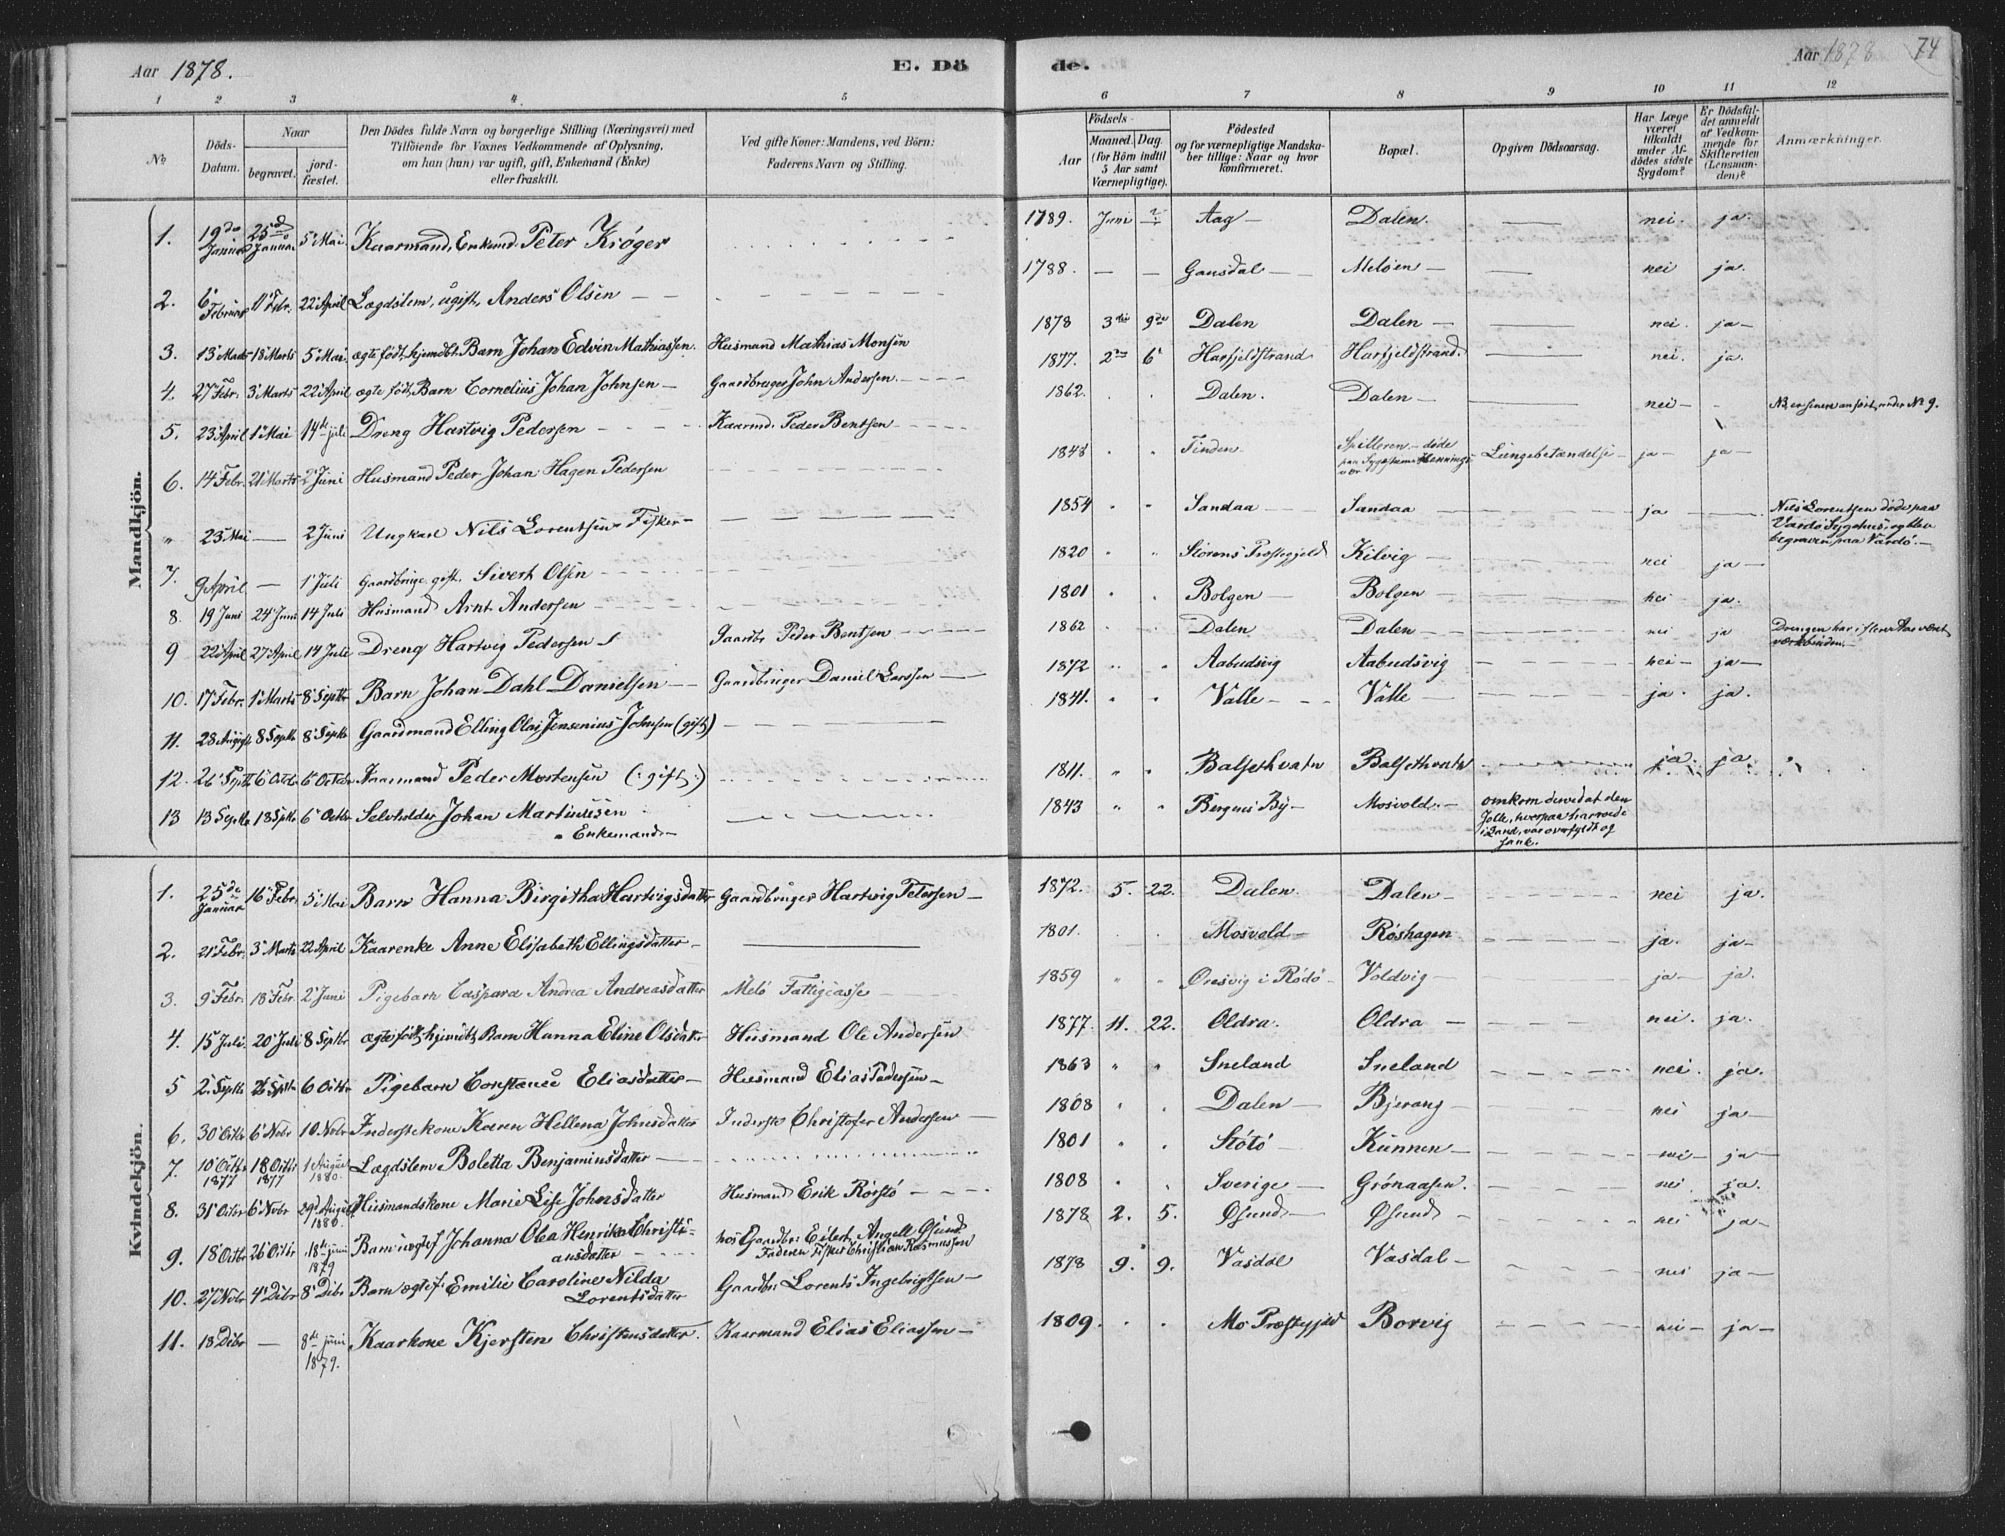 Aar 1878. E. Dö de. Aar 1878 74
1 2 3 4. 5 6 7 8 9 10 11 12
№ Döds-Datum. Naar begravet. jord-fæstet.
Den Dödes fulde Navn og borgerlige Stilling (Næringsvei) med
Tilföiende for Voxnes Vedkommende af Oplysning,
om han (hun) var ugift, gift, Enkemand (Enke)
eller fraskilt.
Ved gifte Koner: Mandens, ved Börn:
Faderens Navn og Stilling.
Aar
Födsels-
Maaned. Dag.
(for Börn indtil
5 Aar samt
Værnepligtige).
Födested
og for værnepligtige Mandska-
ber tillige: Naar og hvor
konfirmeret.
Bopæl.
Opgiven Dödsaarsag.
Har Læge
været
tilkaldt
under Af-
dödes sidste
Sygdom?
Er Dödsfal-
det anmeldt
af Vedkom-
mende for
Skifteretten
(Lensman-
den)?
Anmærkninger.
Mandkjön.
1. 19de Januar 25de Januar 5 Mai Kaarmand, Enkemd. Peter Krøger 1789. Juni Aag Dalen. nei. ja.
2. 6 Februar 11 Febr. 22 April Lægdslem, ugift, Anders Olsen 1788. Gausdal Meløen nei ja.
3. 13 Marts 18 Marts 5 Mai ægte født, hjemdbt. Barn Johan Edvin Mathiassen. Husmand Mathias Monsen 1878 3die 9de Dalen Dalen nei. ja
4. 27 Febr. 3 Marts 22 April ægte født, Barn Cornelius Johan Johnsen Gaardbruger John Andersen. 1877. 2 6 Harfjeldstrand Harfjeldstrand. nei. ja.
5. 23 April 1 Mai 14de juli Dreng Hartvig Pedersen Kaarmd. Peder Bentsen 1862. Dalen. Dalen nei NB. er senere anført under № 9.
6. 14 Febr. 21 Marts 2 Juni Husmand Peder Johan Hagen Pedersen 1843 Finden Spilderen døde paa Sygestuen Hennings-vær Lungebetændelse ja ja
" 23 Mai 2 Juni Ungkarl Nils Lorentsen Fisker 1854 Sandaa Sandaa ja Nils Lorentsen døde paa
Vardø Sygehus, og blev
begraven paa Vardø.
7. 9 April 1 Juli Gaardbruge, gift, Sivert Olsen 1820 Præstegjeld Kilvig nei ja
8. 19 Juni 24 Juni 14 Juli Husmand Arnt Andersen 1801 Bolgen Bolgen nei ja.
9 22 April 27 April 14 Juli Dreng Hartvig Pedersen Gaardbr Peder Bentsen 1862 Dalen Dalen nei ja Drengen har i flere Aar været
10. 17 Febr. 1 Marts 8 Septbr Barn Johan Dahl Danielsen Gaardbruger Daniel Larssen 1872 Aabudsvig Aabudsvig nei ja
11. 28 August 8 Septb 8 Septb Gaardmand Elling Olai Jensenius Johnsen (gift) 1841. Valle Valle ja. ja.
12. 26 Septb 6 Octbr 6 Octobr Kaarmand Peder Mortensen (: gift :) 1811. Balsethvatn Balsethvatn ja. ja.
13 13 Septb 18 Septb 6 Octbr Selvholder Johan Martinussen 1843 Bergens By Mosvold omkom derved at den
Enkemand Jolle, hvorpaa han roede
i Land, var overfyldt og
sank.
Kvindekjön.
1. 25de Januar 16 Febr. 5 Mai Barn Hanna Birgitha Hartvigsdatter Gaardbruger Hartvig Petersen 1872. 5. 22. Dalen. Dalen nei ja.
2. 21 Febr. 3 Marts 22 April Kaarenke Anne Elisabeth Ellingsdatter 1801. Mosvold Røshagen ja. ja
3. 9 Febr. 18 Febr. 2 Juni Pigebarn Caspara Andrea Andreasdatter Melø Fattigcasse 1859 Øresvig i Rødø Voldvig ja ja.
4. 15 Juli 20 Juli 8 Septbr ægtefødt, hjemdt. Barn Hanna Eline Olsdatter Husmand Ole Andersen 1877. 11. 22. Oldra. Oldra nei. ja.
5 2. Septb 26 Septb 6 Octbr Pigebarn Constance Eliasdatter Husmand Elias Pedersen 1863 Sneland Sneland nei. ja.
6. 30 Octbr 6 Novbr 10 Novbr Inderstekone Karen Hellena Johnsdatter Inderst Christofer Andersen 1808 Dalen Bjerang nei ja
7. 10 Octbr 1877 18 Octbr 1877 1 August 1880. Lægdslem Boletta Benjaminsdatter 1801 Støtø Kunnen nei ja
8. 31 Octbr 6 Novbr 29de August 1880. Husmandskone Marie Lise Johnsdatter Husmand Erik Rørstø 1808 Sverige Grønaasen. nei ja.
9. 18 Octbr 26 Octbr 18de juni 1879 Barn ægtef. Johanna Olea Henrika Christi-
ansdatter hos Gaardbr. Eilert Angell Øsund
Faderen Fisker Christian Rasmussen 1878 2. 5. Øsund Øsund nei ja
10. 27 Novbr 4 Decbr 8 Decbr Barn ægtef. Emilie Caroline Nilda
Lorentsdatter Gaardbr. Lorents Ingebrigtsen 1878 9. 9. Vasdal Vasdal nei ja
11. 18 Decbr 8de juni 1879. Kaarkone Kjersten Christensdatter. Kaarmand Elias Eliassen 1809. Mo Præstegjeld Borvig nei ja